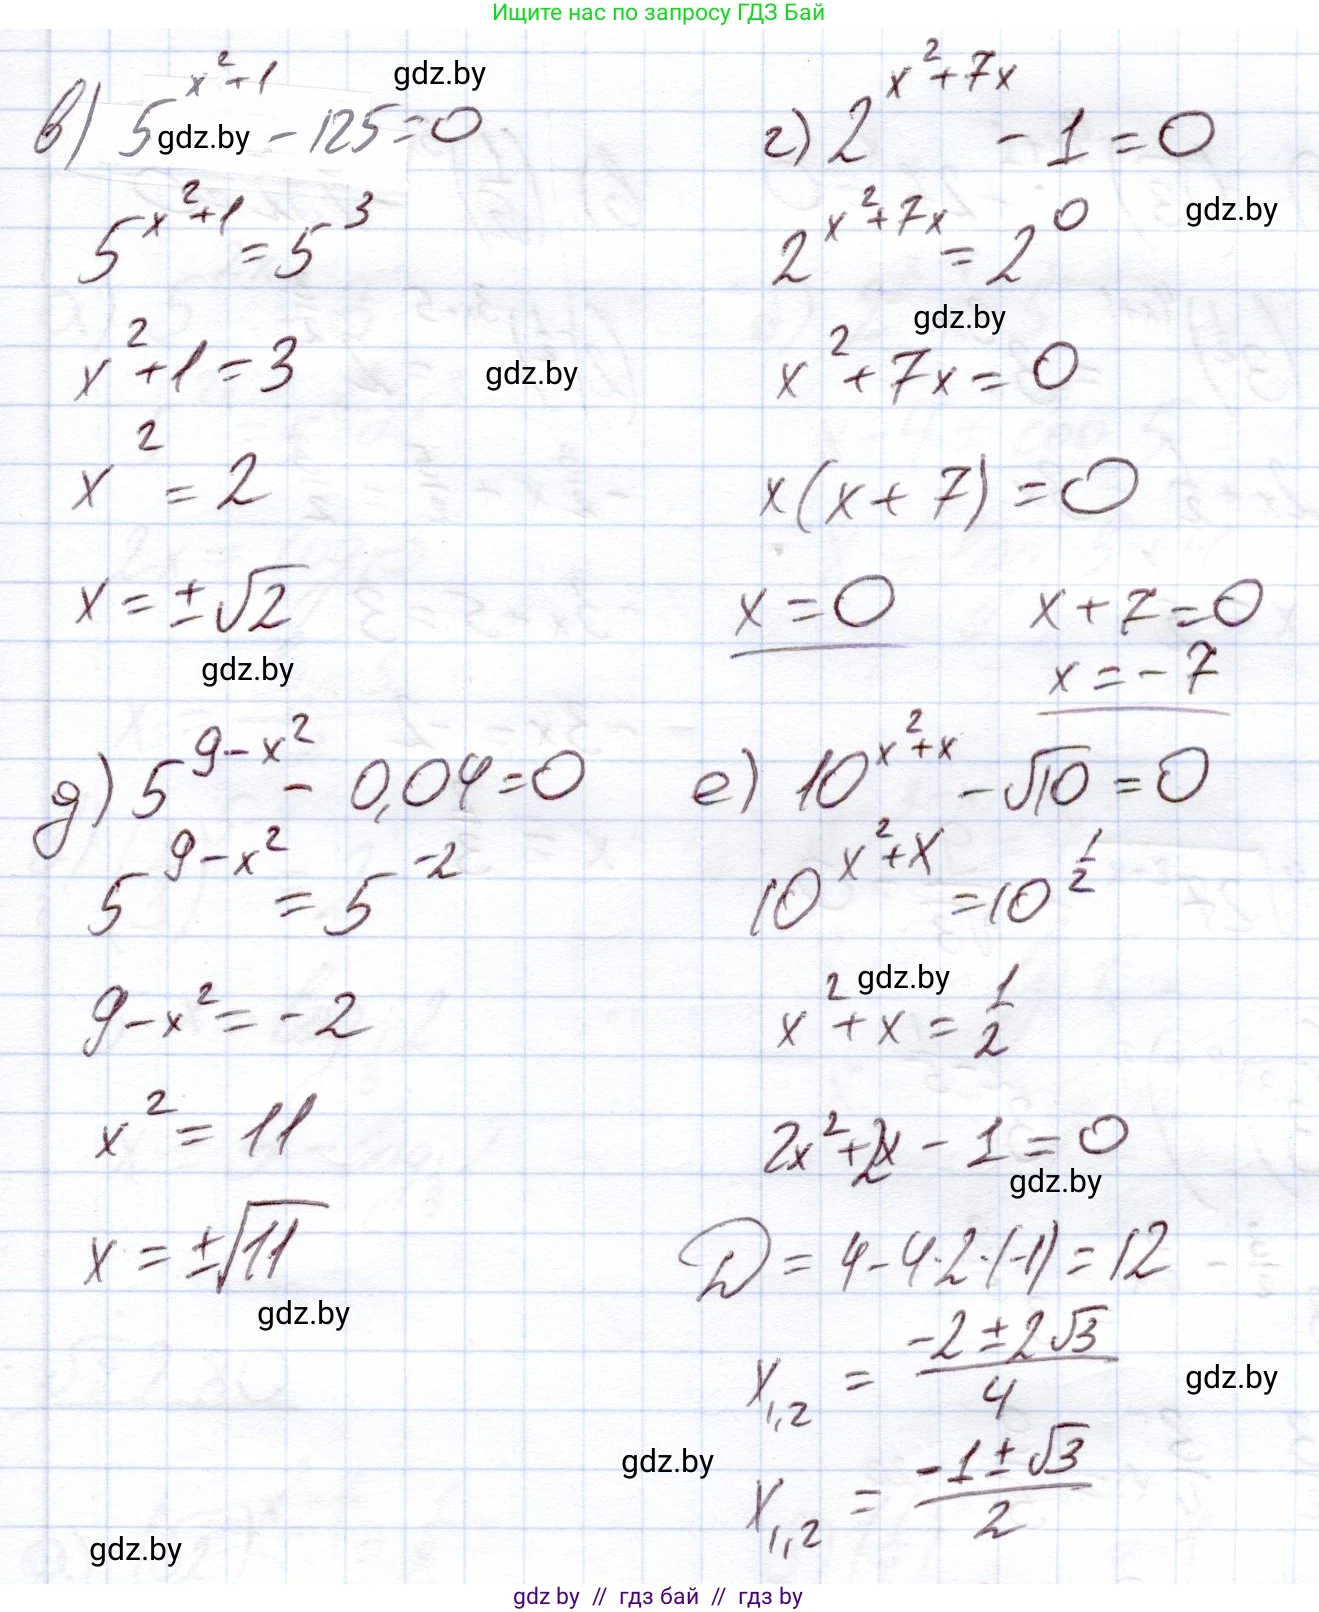 Ищите нас по запросу ГДЗ Бай
в) 5^(x²+1) - 125 = 0
gdz.by
gdz.by
5^(x²+1) = 5³
x²+1 = 3
gdz.by
x² = 2
x = ±√2
gdz.by
г) 2^(x²+7x) - 1 = 0
gdz.by
2^(x²+7x) = 2⁰
gdz.by
x²+7x = 0
x(x+7) = 0
x = 0 x+7 = 0
x = -7
д) 5^(9-x²) - 0,04 = 0
5^(9-x²) = 5^(-2)
9-x² = -2
x² = 11
x = ±√11
gdz.by
е) 10^(x²+x) - √10 = 0
10^(x²+x) = 10^(1/2)
gdz.by
x²+x = 1/2
2x²+2x - 1 = 0
gdz.by
D = 4-4·2·(-1) = 12
x₁,₂ = (-2±2√3)/4
gdz.by
gdz.by
x₁,₂ = (-1±√3)/2
gdz.by
gdz by // гдз бай // гдз by